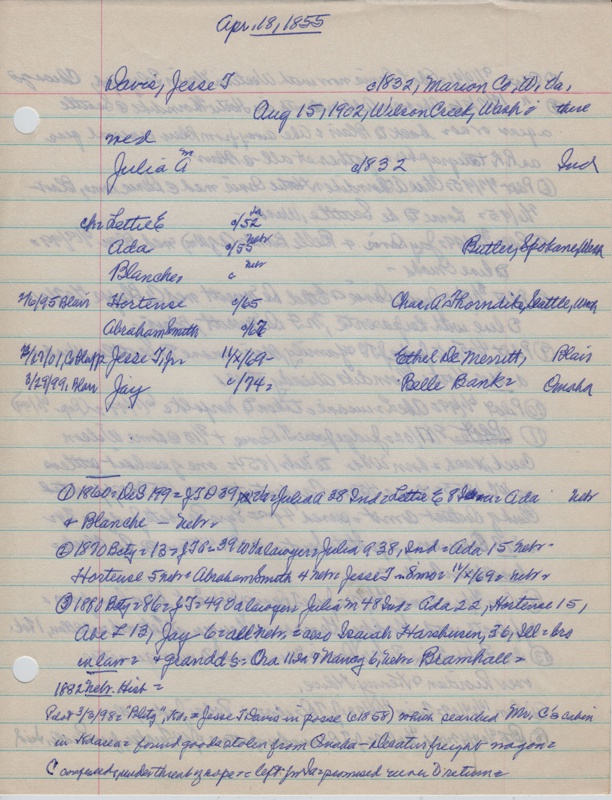 Apr. 18, 1855
Davis, Jesse T. c/1832, Marion Co, W. Va,
Aug 15, 1902, Wilson Creek, Wash = there
med
Julia A m c/1832 Ind
ch = Lettie E c/52 Ia
Ada c/55 Nebr Butler, Spokane, Wash
Blanche = c Nebr
2/6/95 Blair Hortense c/65 Chas. A Thorndike, Seattle, Wash
Abraham Smith c/67
Jesse T, Jr 11/X/69 = Ethel De Merritt, Blair
3/29/99, Blair Jay c/74 = Belle Banks Omaha
① 1860 = DeS 199 = JTD 39, Va = Julia A 38 Ind = Lettie E 8 = Ada Nebr
+ Blanche - Nebr =
② 1870 = 13 = JTD = 39 WVa lawyer = Julia A 38, Ind = Ada 15 Nebr =
Hortense 5 Nebr = Abraham Smith 4 Nebr = Jesse T = 8mo = 11/X/69 = Nebr =
③ 1880 = 86 = JT = 49 Va lawyer = Julia M 48 Ind = Ada 22, Hortense 15,
Abe L 13, Jay 6 = all Nebr = also Isaiah 36, Ill = bro
in law = + grandd s = Ora 11 + Nancy 6, Nebr Bramhall =
1882 Nebr. Hist =
3/3/98 = Jesse T Davis in posse (c1858) which searched Mr. C's cabin
in = found goods stolen from Omaha - Decatur freight wagon =
C confessed under threat of rope = left for Ia = promised never to return =